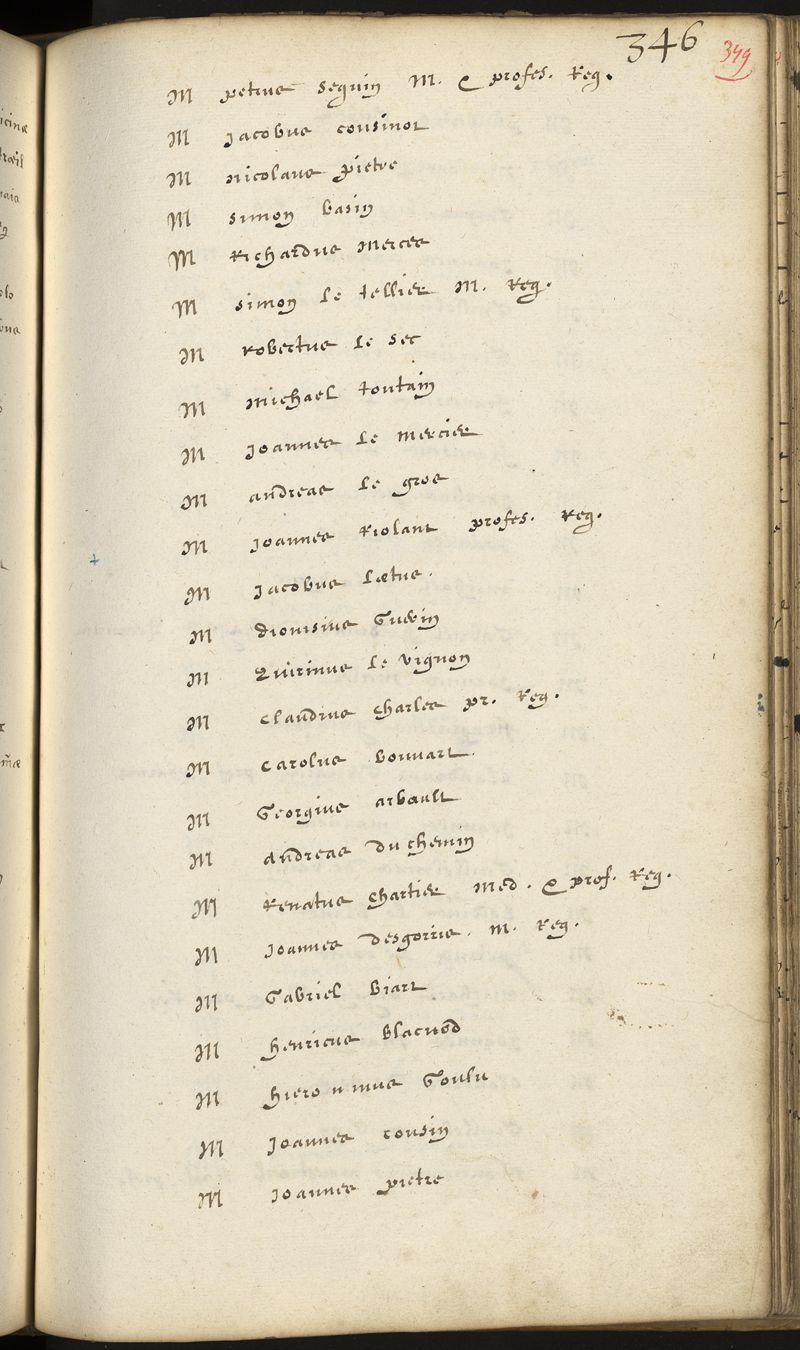 346
349
M petrus seguin M. & profes. Reg.
M Jacobus cousinot
M nicolaus pietre
M simon basin
M Richardus Merces
M simon Le tellier M. Reg.
M Robertus Le sec
M Michael toutain
M Joannes Le mercier
M andreas Le gros
M Joannes Riolant profes. Reg.
M Jacobus Lætus.
M Dionisius Guerin
M Quirinus Le vignon
M Claudius Charles pr. Reg.
M Carolus Bouvart.
M Georgius arbault
M Andreas Du chemin
M Renatus Chartier Med. & prof. Reg.
M Joannes Desgorris. M. Reg.
M Gabriel Biart
M henricus Blacuod
M hieronimus Goulu
M Joannes cousin
M Joannes pietre